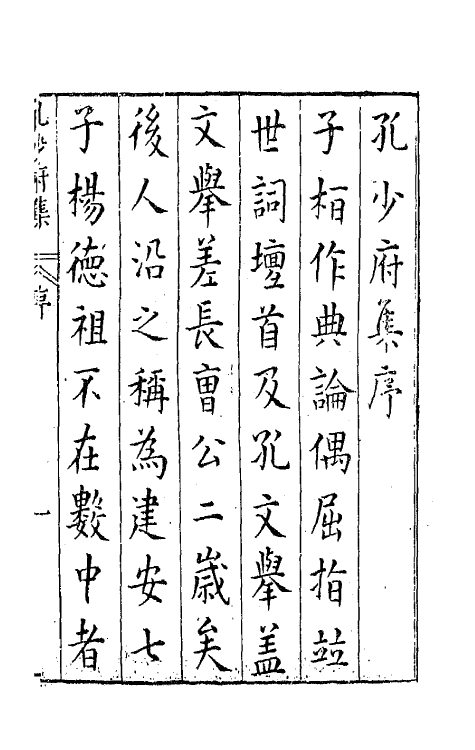 孔少府集序
子桓作典論偶屈指竝
世詞壇首及孔文舉蓋
文舉差長曹公二歲矣
後人沿之稱為建安七
子楊德祖不在數中者
孔少府集 序 一